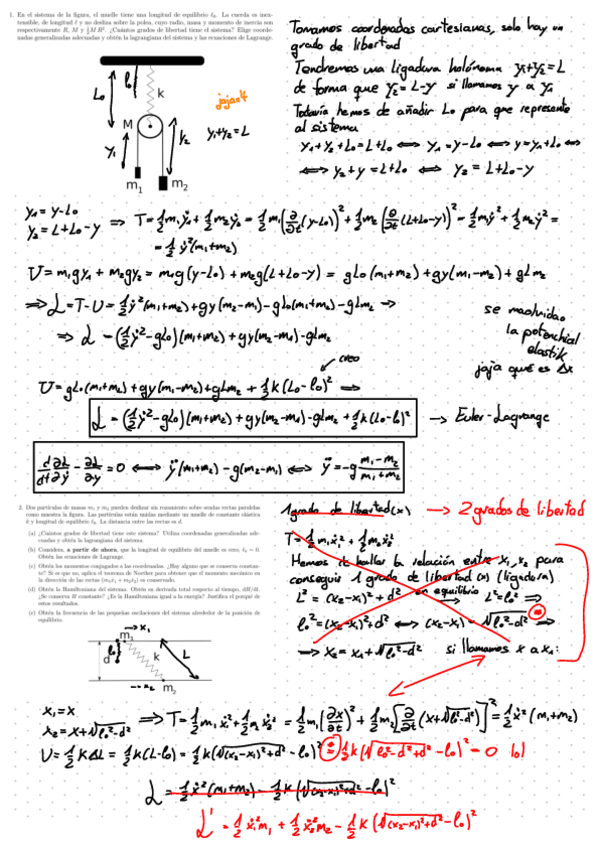 1. En el sistema de la figura, el muelle tiene una longitud de equilibrio ℓ₀. La cuerda es inex-
tensible, de longitud ℓ y no desliza sobre la polea, cuyo radio, masa y momento de inercia son
respectivamente R, M y ½MR². ¿Cuántos grados de libertad tiene el sistema? Elige coorde-
nadas generalizadas adecuadas y obtén la lagrangiana del sistema y las ecuaciones de Lagrange.
Tomamos coordenadas cartesianas, solo hay un
grado de libertad
Tendremos una ligadura holónoma y₁+y₂=L
de forma que y₂=L-y si llamamos y a y₁
Todavía hemos de añadir L₀ para que represente
al sistema
y₁+y₂+L₀=L+L₀ ⟺ y₁=y-L₀ ⟺ y=y₁+L₀ ⟺
⟺ y₂+y=L+L₀ ⟺ y₂=L+L₀-y
l₀
L₀
k
M
y₁
y₂
y₁+y₂=L
m₁
m₂
y₁=y-L₀
y₂=L+L₀-y ⟹ T=½m₁ẏ₁+½m₂ẏ₂=½m₁(∂/∂t(y-L₀))²+½m₂(∂/∂t(L+L₀-y))²=½m₁ẏ²+½m₂ẏ²=
=½ẏ²(m₁+m₂)
U=m₁gy₁+m₂gy₂=m₁g(y-L₀)+m₂g(L+L₀-y)=gL₀(m₁+m₂)+gy(m₁-m₂)+gLm₂
⟹ L=T-U=½ẏ²(m₁+m₂)+gy(m₂-m₁)-gL₀(m₁+m₂)-gLm₂ ⟹
⟹ L=(½ẏ²-gL₀)(m₁+m₂)+gy(m₂-m₁)-gLm₂
se maolvidao
la potenchial
elastik
jaja qué es Δx
creo
U=gL₀(m₁+m₂)+gy(m₁-m₂)+gLm₂+½k(L₀-l₀)² ⟹
L=(½ẏ²-gL₀)(m₁+m₂)+gy(m₂-m₁)-gLm₂+½k(L₀-l₀)² → Euler-Lagrange
d/dt ∂L/∂ẏ - ∂L/∂y = 0 ⟺ ÿ(m₁+m₂)-g(m₂-m₁) ⟺ ÿ=-g (m₁-m₂)/(m₁+m₂)
2. Dos partículas de masas m₁ y m₂ pueden deslizar sin rozamiento sobre sendas rectas paralelas
como muestra la figura. Las partículas están unidas mediante un muelle de constante elástica
k y longitud de equilibrio ℓ₀. La distancia entre las rectas es d.
(a) ¿Cuántos grados de libertad tiene este sistema? Utiliza coordenadas generalizadas ade-
cuadas y obtén la lagrangiana del sistema.
(b) Considera, a partir de ahora, que la longitud de equilibrio del muelle es cero, ℓ₀ = 0.
Obtén las ecuaciones de Lagrange.
(c) Obtén los momentos conjugados a las coordenadas. ¿Hay alguno que se conserva constan-
te? Si es que no, aplica el teorema de Noether para obtener que el momento mecánico en
la dirección de las rectas (m₁ẋ₁ + m₂ẋ₂) es conservado.
(d) Obtén la Hamiltoniana del sistema. Obtén su derivada total respecto al tiempo, dH/dt.
¿Se conserve H constante? ¿Es la Hamiltoniana igual a la energía? Justifica el porqué de
estos resultados.
(e) Obtén la frecuencia de las pequeñas oscilaciones del sistema alrededor de la posición de
equilibrio.
1 grado de libertad (x) → 2 grados de libertad
T=½m₁ẋ₁²+½m₂ẋ₂²
Hemos de hallar la relación entre x₁, x₂ para
conseguir 1 grado de libertad (x) (ligadura)
L²=(x₂-x₁)²+d² en equilibrio L²=l₀² ⟹
l₀²=(x₂-x₁)²+d² ⟺ (x₂-x₁)=√(l₀²-d²) ⟹
→ x₂=x₁+√(l₀²-d²) si llamamos x a x₁:
→ x₁
m₁
l₀
d
k
L
→ x₂
m₂
x₁=x
x₂=x+√(l₀²-d²) ⟹ T=½m₁ẋ₁²+½m₂ẋ₂²=½m₁(∂x/∂t)²+½m₂[∂/∂t(x+√(l₀²-d²))]²=½ẋ²(m₁+m₂)
U=½kΔL=½k(L-l₀)=½k(√((x₂-x₁)²+d²)-l₀)²=½k(√(l₀²-d²+d²)-l₀)²=0 lol
L=½ẋ²(m₁+m₂)-½k(√((x₂-x₁)²+d²)-l₀)²
L'=½ẋ₁²m₁+½ẋ₂²m₂-½k(√((x₂-x₁)²+d²)-l₀)²